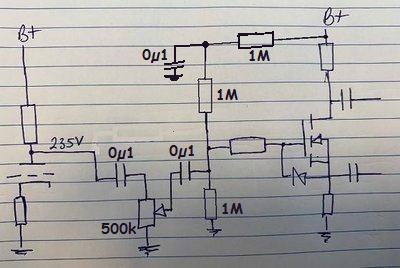 B+
B+
0µ1
1M
1M
235V
0µ1
0µ1
500k
1M